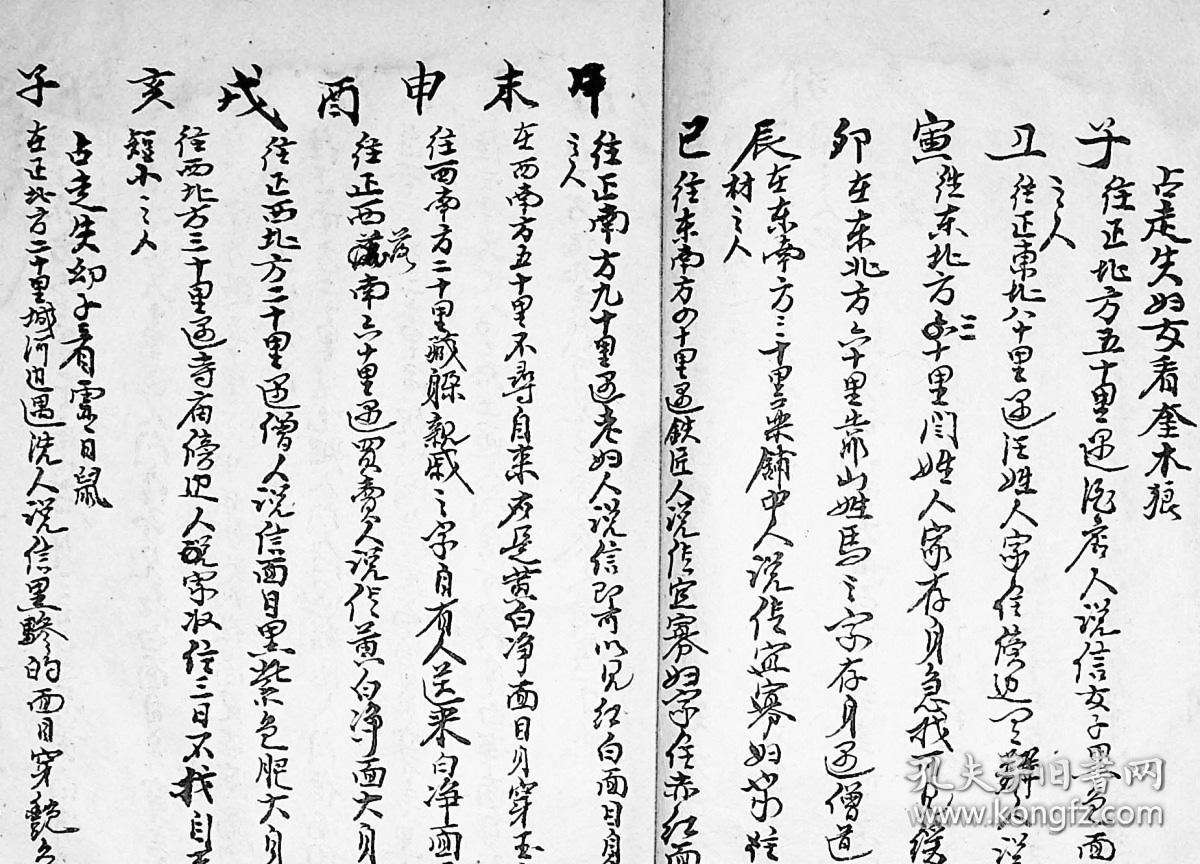 占走失妇女看奎木狼
子 往正北方五十里遇酒店人说信女子黑色面
之人
丑 往正東北八十里遇汪姓人家住傍边
寅 往东北方三十里闫姓人家存身急找可見
卯 在东北方六十里靠山姓馬之家存身遇僧道
辰 在东南方三十里药舖中人说信宜寡妇家
材之人
巳 往东南方四十里遇鉄匠人说信宜寡妇家住赤红面
午 往正南方九十里遇老妇人说信即可以見红白面目身
之人
未 在西南方五十里不尋自来应是黄白净面目身穿玉
申 往西南方二十里藏躲親戚之家自有人送来白净面
酉 往正西落南六十里遇買賣人说信黄白净面大身
戌 往正西北方二十里遇僧人说信面目黑紫色肥大身
亥 往西北方三十里遇寺庙傍边人说家收住三日不找自
短小之人
占走失幼子看虚日鼠
子 在正北方二十里城河边遇洗人说信黑黪的面目穿艶色
孔夫子旧書网
www.kongfz.com